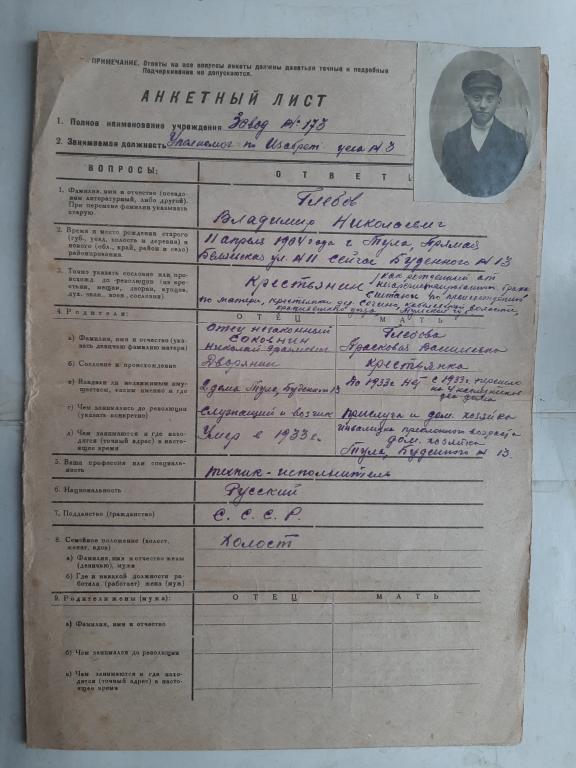 ПРИМЕЧАНИЕ. Ответы на все вопросы анкеты должны даваться точные и подробные
Подчеркивания не допускаются.
АНКЕТНЫЙ ЛИСТ
1. Полное наименование учреждения Завод № 173
2. Занимаемая должность Уполномоч по цеха № 3
ВОПРОСЫ:
ОТВЕТЫ
1. Фамилия, имя и отчество (псевдоним литературный, либо другой). При перемене фамилии указывать старую.
Глебов
Владимир Николаевич
2. Время и место рождения старого (губ., уезд, волость и деревня) и нового (обл., край, район и село) районирования.
11 апреля 1904 года г Тула, Прямая
ул. № 11 сейчас Буденого № 13
3. Точно указать сословие или происхожд до революции (из крестьян, мещан, дворян, купцов, дух. зван. воен. сословия)
Крестьянин как рожденый от
брака
считаюсь по
по матери, крестьянки
4. Родители:
ОТЕЦ
МАТЬ
а) Фамилия, имя и отчество (указать девичью фамилию матери)
Отец незаконный
Соковнин
Николай
Глебова
Прасковья Васильевна
б) Сословие и происхождение
Дворянин
Крестьянка
в) Владели ли недвижимым имуществом, каким именно и где
2 дома Тула, Буденного 13
До 1933г. нет с 1933г. перешло
два дома
г) Чем занимались до революции (указать конкретно)
Служащий и возчик
прислуга и дом. хозяйка
д) Чем занимаются и где находятся (точный адрес) в настоящее время
Умер в 1933 г.
инвалидка преклонного возраста
дом. хозяйка
Тула, Буденного № 13.
5. Ваша профессия или специальность
техник-исполнитель
6. Национальность
Русский
7. Подданство (гражданство)
С. С. С. Р.
8. Семейное положение (холост, женат, вдов)
Холост
а) Фамилия, имя и отчество жены (девичью), мужа
б) Где и на какой должности работала (работает) жена (муж)
9. Родители жены (мужа):
ОТЕЦ
МАТЬ
а) Фамилия, имя и отчество
б) Чем занимался до революции
в) Чем занимаются и где находятся (точный адрес) в настоящее время